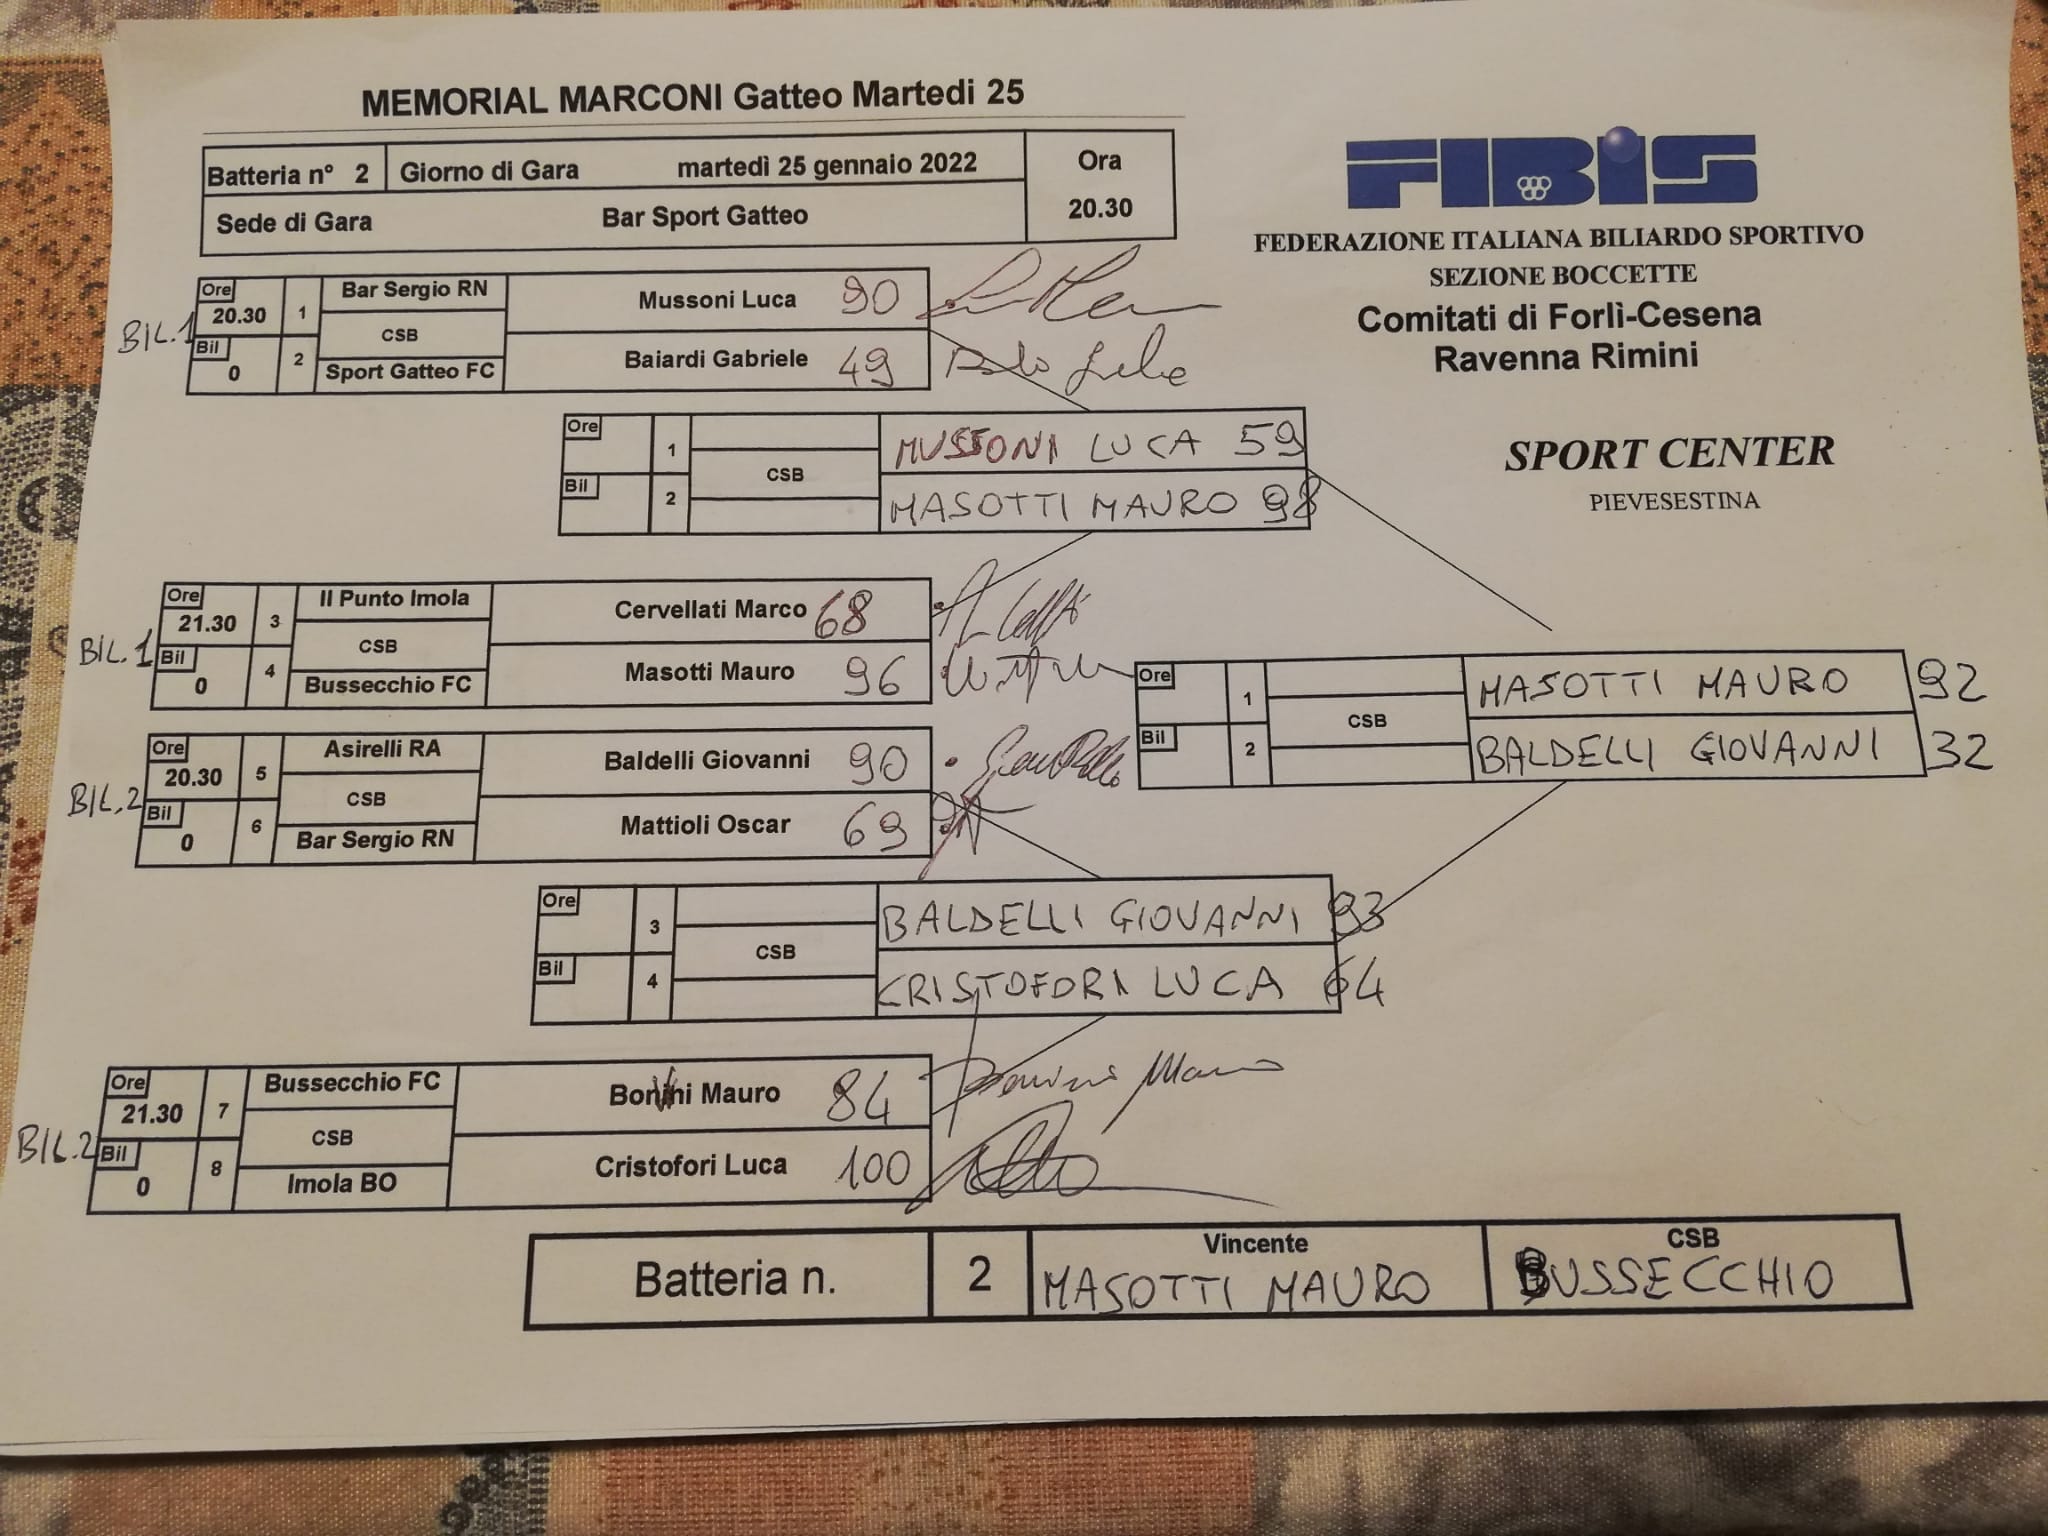 MEMORIAL MARCONI Gatteo Martedi 25
Batteria n° 2 Giorno di Gara martedì 25 gennaio 2022 Ora
Sede di Gara Bar Sport Gatteo 20.30
FIBIS
FEDERAZIONE ITALIANA BILIARDO SPORTIVO
SEZIONE BOCCETTE
Comitati di Forlì-Cesena
Ravenna Rimini
SPORT CENTER
PIEVESESTINA
BIL.1
Ore 20.30 1 Bar Sergio RN Mussoni Luca 90
CSB
Bil 0 2 Sport Gatteo FC Baiardi Gabriele 49
Ore 1 MUSSONI LUCA 59
CSB
Bil 2 MASOTTI MAURO 98
BIL.1
Ore 21.30 3 Il Punto Imola Cervellati Marco 68
CSB
Bil 0 4 Bussecchio FC Masotti Mauro 96
Ore 1 MASOTTI MAURO 92
CSB
Bil 2 BALDELLI GIOVANNI 32
BIL.2
Ore 20.30 5 Asirelli RA Baldelli Giovanni 90
CSB
Bil 0 6 Bar Sergio RN Mattioli Oscar 69
Ore 3 BALDELLI GIOVANNI 93
CSB
Bil 4 CRISTOFORI LUCA 64
BIL.2
Ore 21.30 7 Bussecchio FC Mauro 84
CSB
Bil 0 8 Imola BO Cristofori Luca 100
Batteria n. 2 Vincente CSB
MASOTTI MAURO BUSSECCHIO